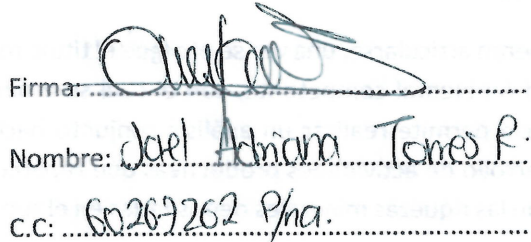 Firma:
Nombre: Jael Adriana Torres R.
C.C: 60267262 P/na.